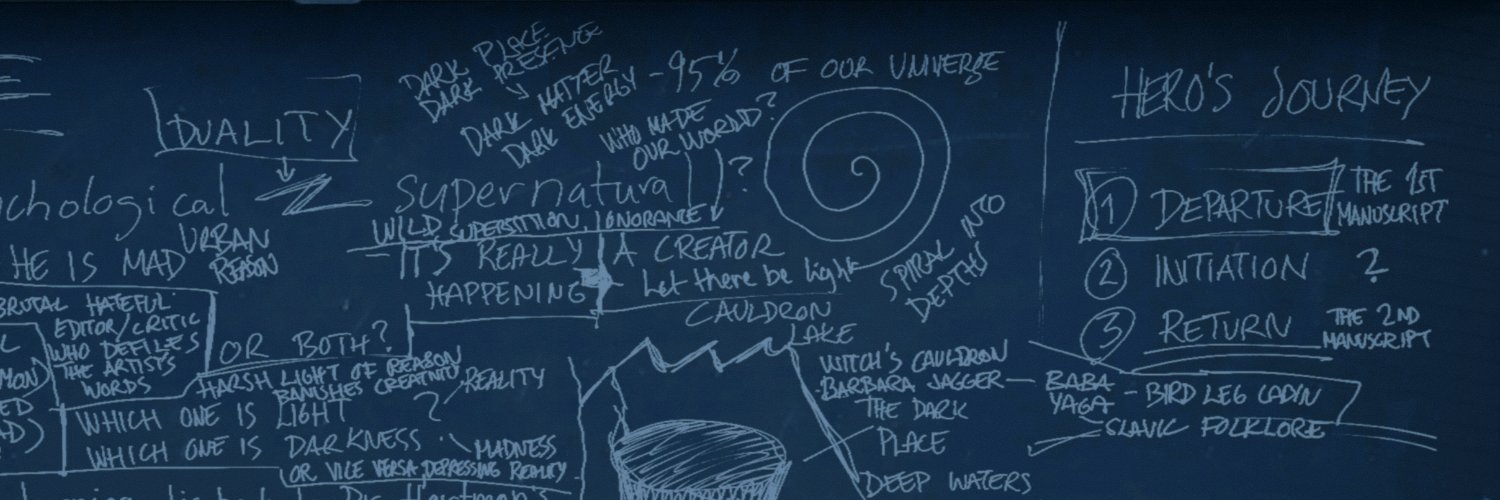 DUALITY
DARK PLACE
DARK PRESENCE
DARK MATTER
DARK ENERGY
-95% OF OUR UNIVERSE
WHO MADE
OUR WORLD?
chological
Supernatural ?
HE IS MAD
URBAN
REASON
WILD SUPERSTITION, IGNORANCE
-IT'S REALLY
HAPPENING
A CREATOR
Let there be light
BRUTAL HATEFUL
EDITOR/CRITIC
WHO DEFILES
THE ARTIST'S
WORDS
OR BOTH?
HARSH LIGHT OF REASON
BANISHES CREATIVITY
REALITY
WHICH ONE IS LIGHT ?
WHICH ONE IS DARKNESS
MADNESS
OR VICE VERSA, DEPRESSING REALITY
SPIRAL INTO
DEPTHS
CAULDRON
LAKE
WITCH'S CAULDRON
BARBARA JAGGER
THE DARK
PLACE
DEEP WATERS
HERO'S JOURNEY
1 DEPARTURE
THE 1ST
MANUSCRIPT
2 INITIATION ?
3 RETURN
THE 2ND
MANUSCRIPT
BABA
YAGA
- BIRD LEG CABIN
SLAVIC FOLKLORE